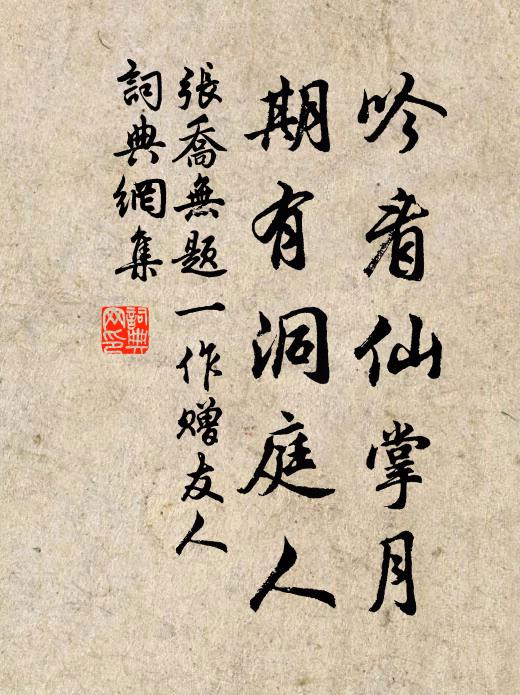 吟看仙掌月
期有洞庭人
張喬無題一作贈友人
詞典網集
詞典
网印